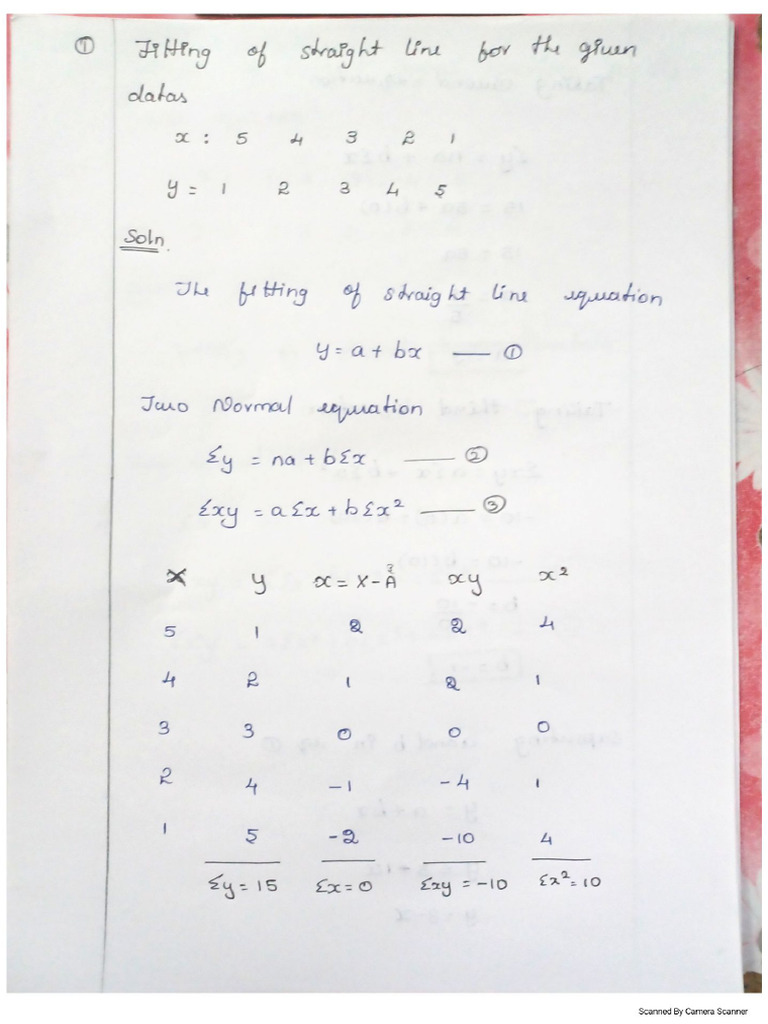 ① Fitting of straight line for the given
datas
x : 5 4 3 2 1
y = 1 2 3 4 5
Soln.
The fitting of straight line equation
y = a + bx —— ①
Two Normal equation
Σy = na + bΣx —— ②
Σxy = aΣx + bΣx² —— ③
X y x = X - A xy x²
5 1 2 2 4
4 2 1 2 1
3 3 0 0 0
2 4 -1 -4 1
1 5 -2 -10 4
Σy = 15 Σx = 0 Σxy = -10 Σx² = 10
Scanned By Camera Scanner